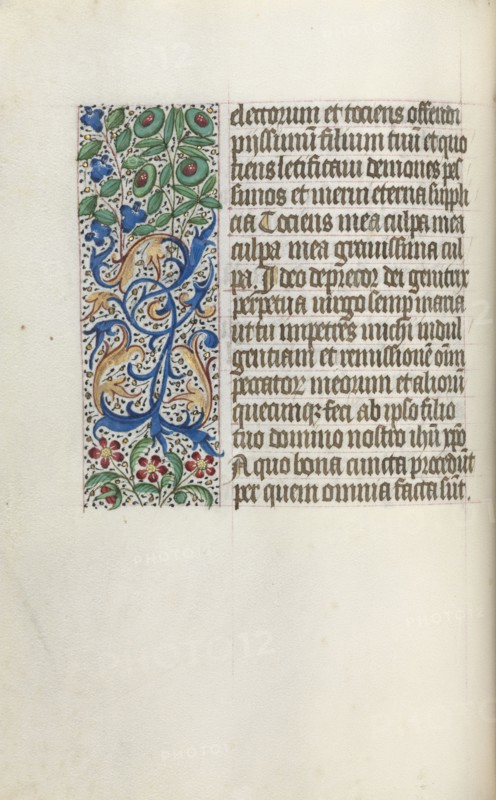 electorum et tociens offendi
pijssimū filium tuū et quo
tiens letificaui demones pes
simos et merui eterna suppli
cia Tociens mea culpa mea
culpa mea grauissima cul
pa. Ideo deprecor dei genitrix
perpetua uirgo semp maria
ut tu impetres michi indul
gentiam et remissionē om̄
peccator meorum et aliorū
quecumqꝫ feci ab ipso filio
tuo domino nostro ihū xp̄o
A quo bona cuncta procedūt
per quem omnia facta sūt.
PHOTO12